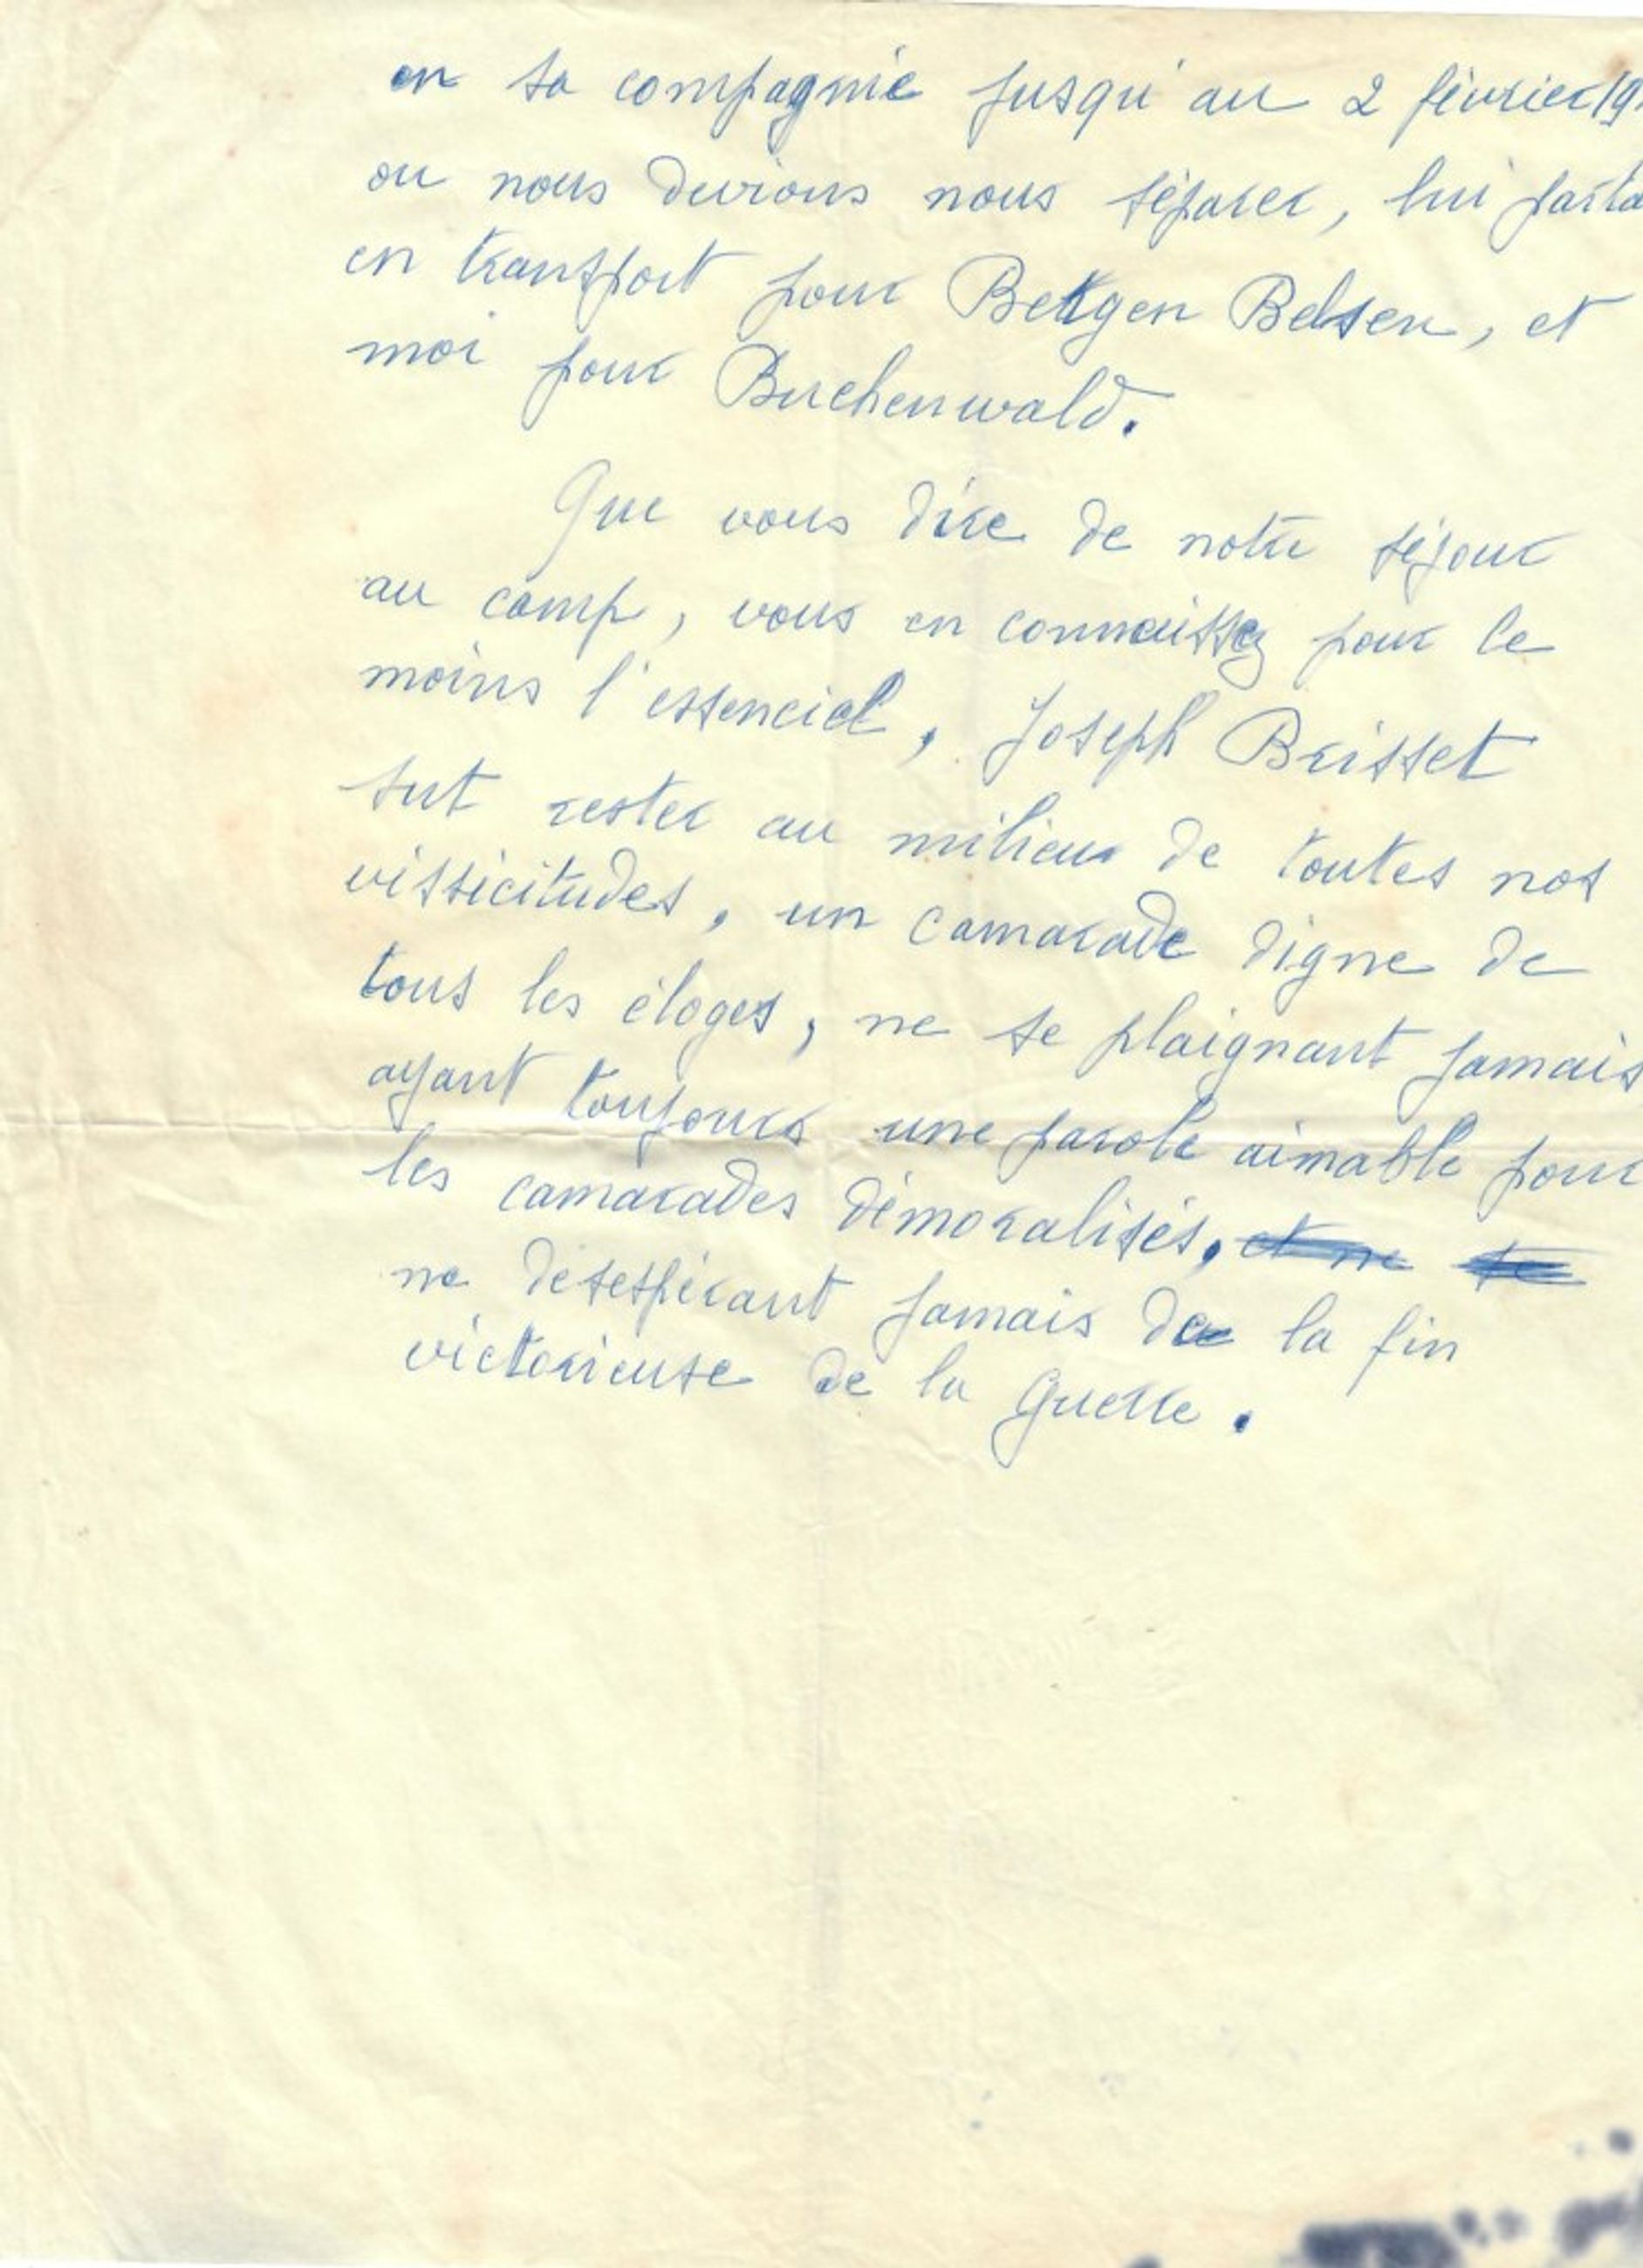 en sa compagnie jusqu'au 2 février 19
ou nous devions nous séparer, lui parta
en transport pour Bergen Belsen, et
moi pour Buchenwald.
Que vous dire de notre séjour
au camp, vous en connaissez pour le
moins l'essenciel, Joseph Brisset
sut rester au milieu de toutes nos
vissicitudes, un camarade digne de
tous les éloges, ne se plaignant jamais
ayant toujours une parole aimable pour
les camarades démoralisés, et ne se
ne désespérant jamais de la fin
victorieuse de la guerre.